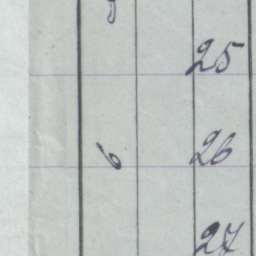 25
6 26
27